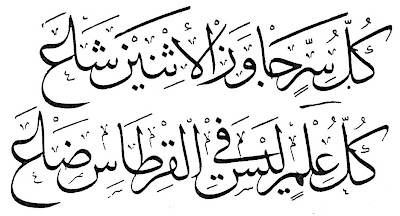 كُلُّ سِرٍّ جَاوَزَ الأَثْنَيْنِ شَاعَ
كُلُّ عِلْمٍ لَيْسَ فِي الْقِرْطَاسِ ضَاعَ